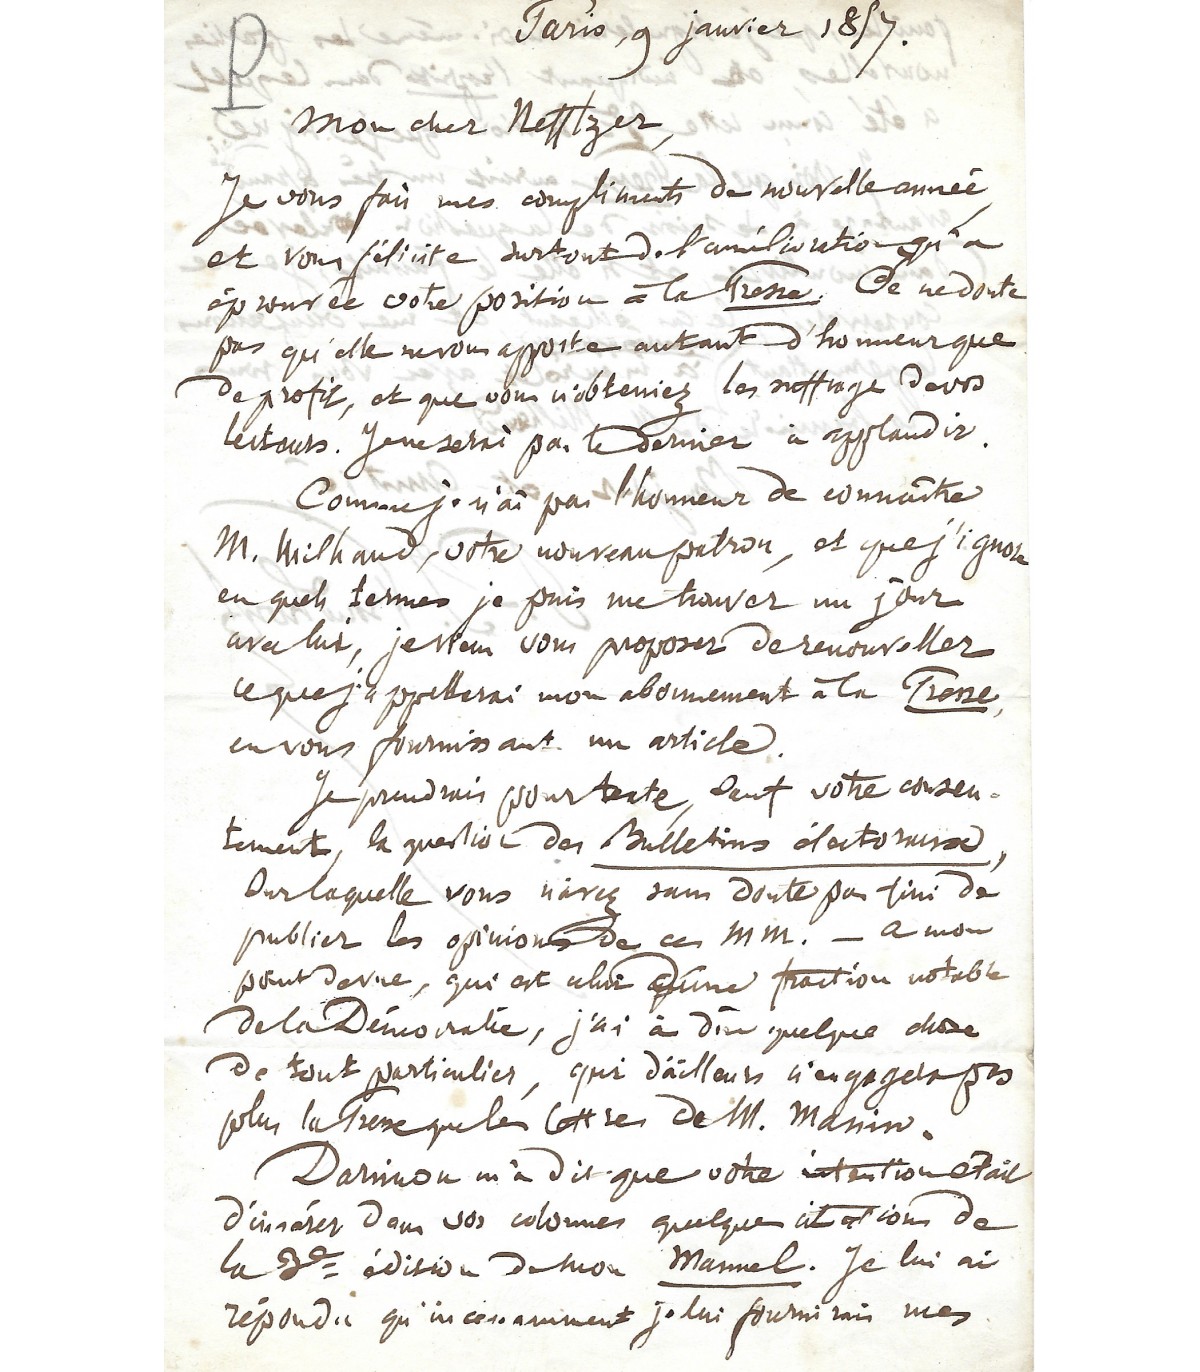 P
Paris, 9 janvier 1857.
Mon cher Nefftzer,
Je vous fais mes compliments de nouvelle année,
et vous félicite surtout de l'amélioration qu'a
éprouvée votre position à la Presse. Je ne doute
pas qu'elle ne vous apporte autant d'honneur que
de profit, et que vous n'obteniez les suffrage de vos
lecteurs. Je ne serai pas le dernier à applaudir.
Comme je n'ai pas l'honneur de connaître
M. Milhaud, votre nouveau patron, et que j'ignore
en quels termes je puis me trouver un jour
avec lui, je viens vous proposer de renouveller
ce que j'appellerai mon abonnement à la Presse,
en vous fournissant un article.
Je prendrais pour texte, sauf votre consen-
tement, la question des Bulletins électoraux,
sur laquelle vous n'avez sans doute pas fini de
publier les opinions de ces MM. — A mon
point de vue, qui est celui d'une fraction notable
de la Démocratie, j'ai à dire quelque chose
de tout particulier, qui d'ailleurs n'engagera pas
plus la Presse que les lettres de M. Manin.
Darimon m'a dit que votre intention était
d'insérer dans vos colonnes quelques citations de
la 3e édition de mon Manuel. Je lui ai
répondu qu'incessamment je lui fournirais mes